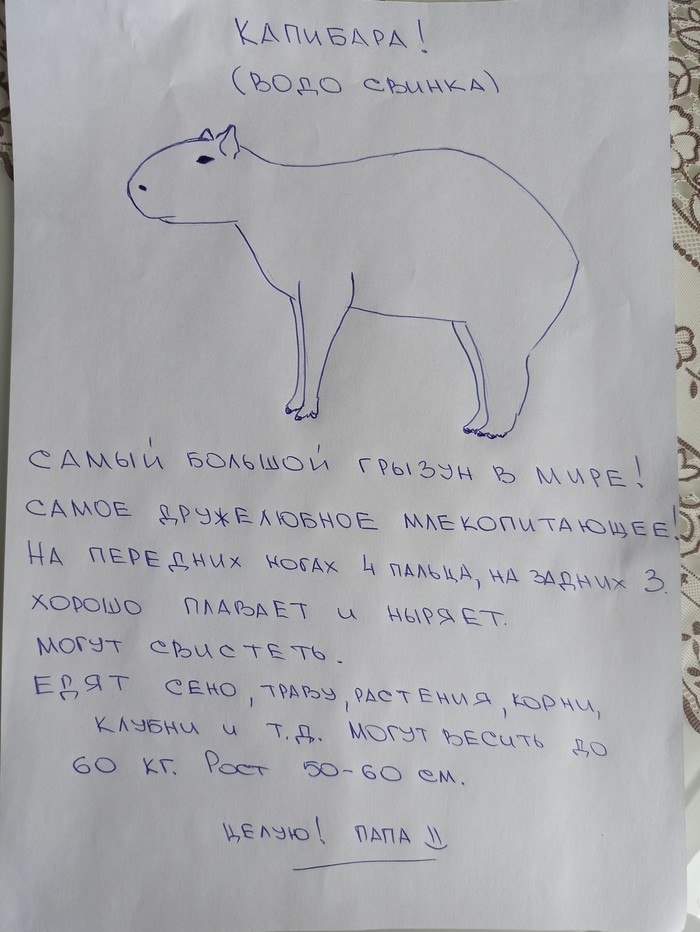 КАПИБАРА!
(ВОДО СВИНКА)
САМЫЙ БОЛЬШОЙ ГРЫЗУН В МИРЕ!
САМОЕ ДРУЖЕЛЮБНОЕ МЛЕКОПИТАЮЩЕЕ!
НА ПЕРЕДНИХ НОГАХ 4 ПАЛЬЦА, НА ЗАДНИХ 3.
ХОРОШО ПЛАВАЕТ И НЫРЯЕТ.
МОГУТ СВИСТЕТЬ.
ЕДЯТ СЕНО, ТРАВУ, РАСТЕНИЯ, КОРНИ,
КЛУБНИ И Т.Д. МОГУТ ВЕСИТЬ ДО
60 КГ. РОСТ 50-60 СМ.
ЦЕЛУЮ! ПАПА =)